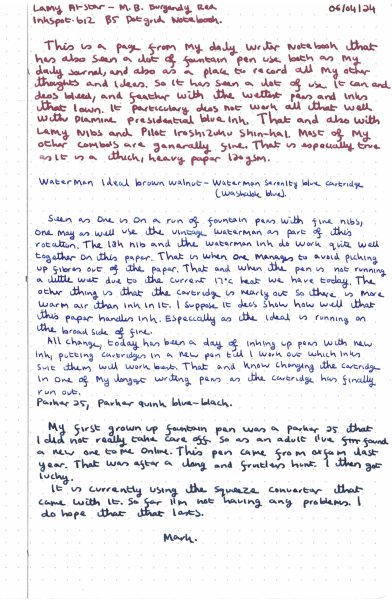 Lamy Al-Star - M.B. Burgandy Red 06/04/24
Inkspot.biz B5 Dot grid Notebook.
This is a page from my daily writer Notebook that
has also seen a lot of fountain pen use both as my
daily journal, and also as a place to record all my other
thoughts and ideas. So it has seen a lot of use. It can and
does bleed, and feather with the wettest pens and inks
that I own. It particulary does not work all that well
with Diamine presidential blue ink. That and also with
Lamy Nibs and Pilot Iroshizuku Shin-kai. Most of my
other combo's are generally fine. That is especially true
as it is a thick, heavy paper 120gsm.
Waterman Ideal brown walnut - Waterman Serenity blue cartridge
(Washable blue).
Seen as One is On a run of fountain pens with fine nibs,
One may as well use the vintage Waterman as part of this
rotation. The 18k nib and the Waterman ink do work quite well
together On this paper. That is when one manages to avoid picking
up fibres out of the paper. That and when the pen is not running
a little wet due to the current 17°c heat we have today. The
other thing is that the cartridge is nearly out so there is more
warm air than ink in it. I suppose it does show how well that
this paper handles ink. Especcially as the Ideal is running on
the broad side of fine.
All change, today has been a day of inking up pens with new
ink, putting cartridges in a new pen till I work out which inks
suit them will work best. That and know changing the cartridge
in One of my longest writing pens as the cartridge has finally
run out.
Parker 25, Parker quink blue-black.
My first grown up fountain pen was a parker 25 that
I did not really take care off. So as an adult I've found
a new one to me Online. This pen came from oxfam last
year. That was after a long and fruitless hunt. I then got
lucky.
It is currently using the squeeze convertor that
came with it. So far I'm not having any problems. I
do hope that that lasts.
Mark.